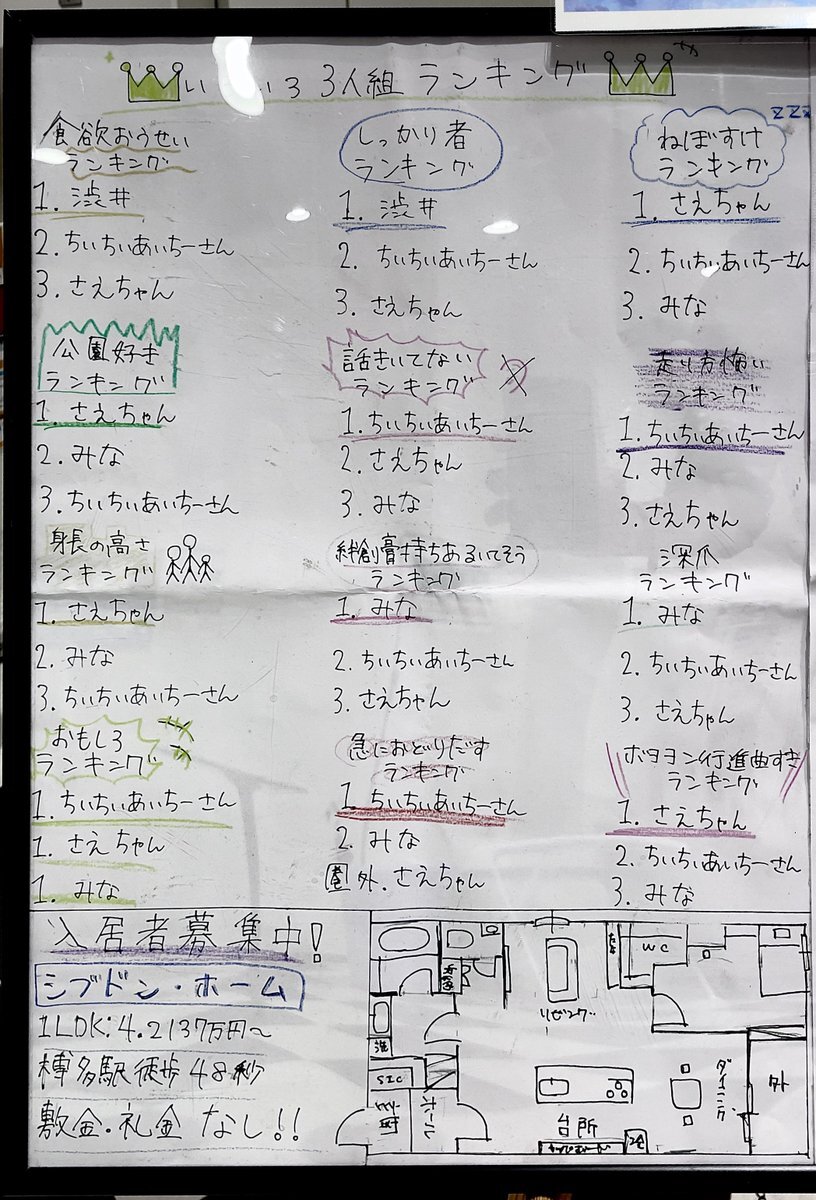 い い3 3人組 ランキング
食欲おうせい
ランキング
1. 渋井
2. ちぃちぃあぃちーさん
3. さえちゃん
しっかり者
ランキング
1. 渋井
2. ちぃちぃあぃちーさん
3. さえちゃん
zzz
ねぼすけ
ランキング
1. さえちゃん
2. ちぃちぃあぃちーさん
3. みな
公園好き
ランキング
1. さえちゃん
2. みな
3. ちぃちぃあぃちーさん
話きいてない
ランキング
1. ちぃちぃあぃちーさん
2. さえちゃん
3. みな
走り方怖い
ランキング
1. ちぃちぃあぃちーさん
2. みな
3. さえちゃん
身長の高さ
ランキング
1. さえちゃん
2. みな
3. ちぃちぃあぃちーさん
絆創膏持ちあるいてそう
ランキング
1. みな
2. ちぃちぃあぃちーさん
3. さえちゃん
深爪
ランキング
1. みな
2. ちぃちぃあぃちーさん
3. さえちゃん
おもしろ
ランキング
1. ちぃちぃあぃちーさん
1. さえちゃん
1. みな
急におどりだす
ランキング
1. ちぃちぃあぃちーさん
2. みな
圏外. さえちゃん
ボヨヨン行進曲すき
ランキング
1. さえちゃん
2. ちぃちぃあぃちーさん
3. みな
入居者募集中!
シブドン・ホーム
1LDK:4.2137万円〜
博多駅徒歩48秒
敷金・礼金 なし!!
WC
リビング
洗
SIC
玄関
ホール
台所
ダイニング
外